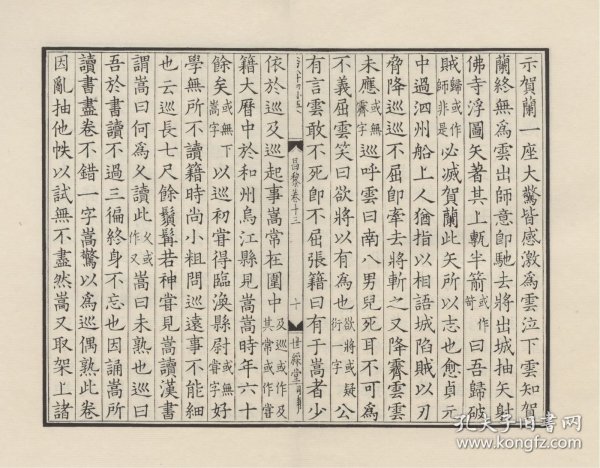 示賀蘭一座大驚皆感激爲雲泣下雲知賀
蘭終無爲雲出師意卽馳去將出城抽矢射
佛寺浮圖矢著其上甎半箭或作箭曰吾歸破
賊歸或作師非是必滅賀蘭此矢所以志也愈貞元
中過泗州船上人猶指以相語城陷賊以刃
脅降巡巡不屈卽牽去將斬之又降霽雲雲
未應或無霽字巡呼雲曰南八男兒死耳不可爲
不義屈雲笑曰欲將以有爲也欲將或疑衍一字公
有言雲敢不死卽不屈張籍曰有于嵩者少
昌黎卷十三
十
世綵堂
依於巡及巡起事嵩常在圍中及巡或作及其常或作嘗
籍大曆中於和州烏江縣見嵩嵩時年六十
餘矣或無嵩字下以巡初嘗得臨渙縣尉或無嘗字好
學無所不讀籍時尚小粗問巡遠事不能細
也云巡長七尺餘鬚髯若神嘗見嵩讀漢書
謂嵩曰何爲久讀此久或作又嵩曰未熟也巡曰
吾於書讀不過三徧終身不忘也因誦嵩所
讀書盡卷不錯一字嵩驚以爲巡偶熟此卷
因亂抽他帙以試無不盡然嵩又取架上諸
孔夫子旧书网
www.kongfz.com